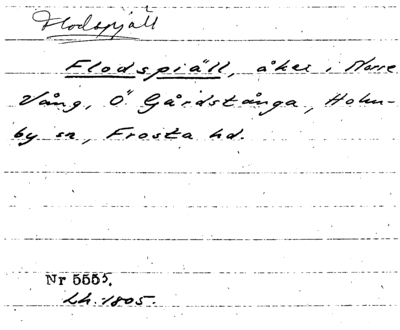 Flodspjäll
Flodspiäll, åker i Norre
Vång, Ö Gårdstånga, Holm-
by sn, Frosta hd.
Nr 5555.
Lh. 1805.